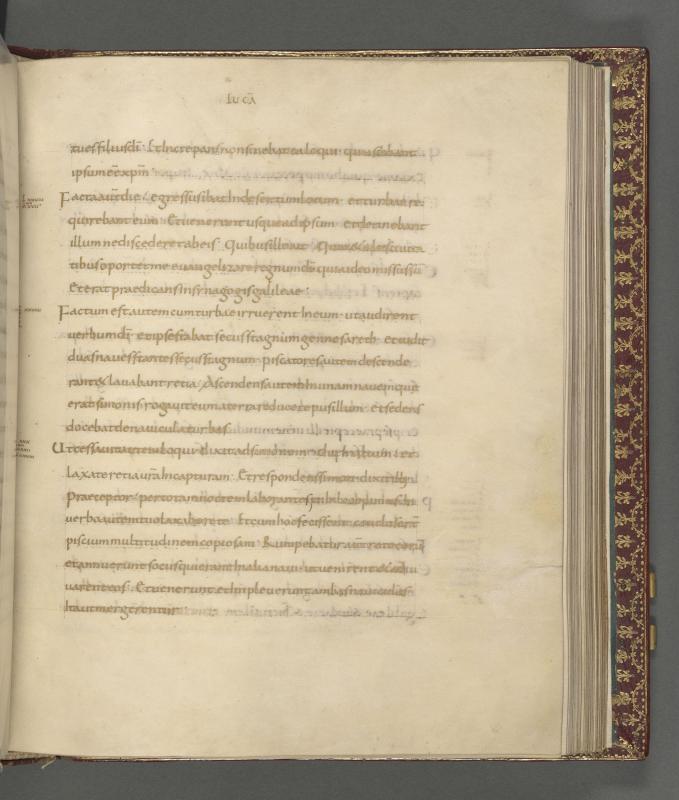 LUCĀ
tu es filius dī Et increpans non sinebat ea loqui quia sciebant
ipsum eē xpm
Facta aut die egressus ibat in desertum locum et turbae re
quirebant eum Et uenerunt usque ad ipsum et detinebant
illum ne discederet ab eis Quibus ille ait Quia & aliis ciuita
tibus oportet me euangelizare regnum dī quia ideo missus sū
Et erat praedicans in synagogis galileae
Factum est autem cum turbae irruerent in eum ut audirent
uerbum dī et ipse stabat secus stagnum gennesareth et uidit
duas naues stantes secus stagnum piscatores autem descende
rant & lauabant retia Ascendens autem in unam nauem que
erat simonis rogauit eum a terra reducere pusillum Et sedens
docebat de nauicula turbas
Ut cessauit autem loqui dixit ad simonem duc in altum et
laxate retia uestra in capturam Et respondens simon dixit illi
Praeceptor per totam noctem laborantes nihil cepimus In
uerbo autem tuo laxabo rete Et cum hoc fecissent concluserunt
piscium multitudinem copiosam Rumpebatur aut rete eorum
et annuerunt sociis qui erant in alia naui ut uenirent et adiu
uarent eos Et uenerunt et impleuerunt ambas nauiculas
ita ut mergerentur